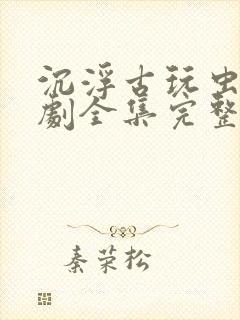 沉浮古玩虫
剧全集完整
秦荣松